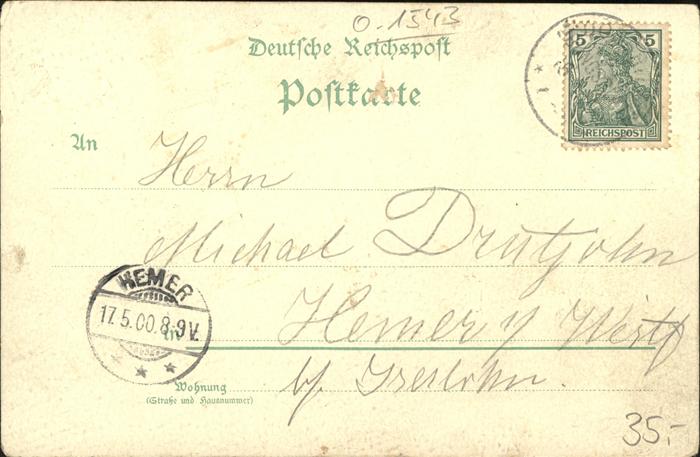 O-1543
Deutsche Reichspost
Postkarte
5 5
REICHSPOST
An
Herrn
Michael Drutjohn
HEMER
17.5.00.8-9V.
Hemer i/ Westf
in
b/ Iserlohn.
Wohnung
(Straße und Hausnummer)
35,-